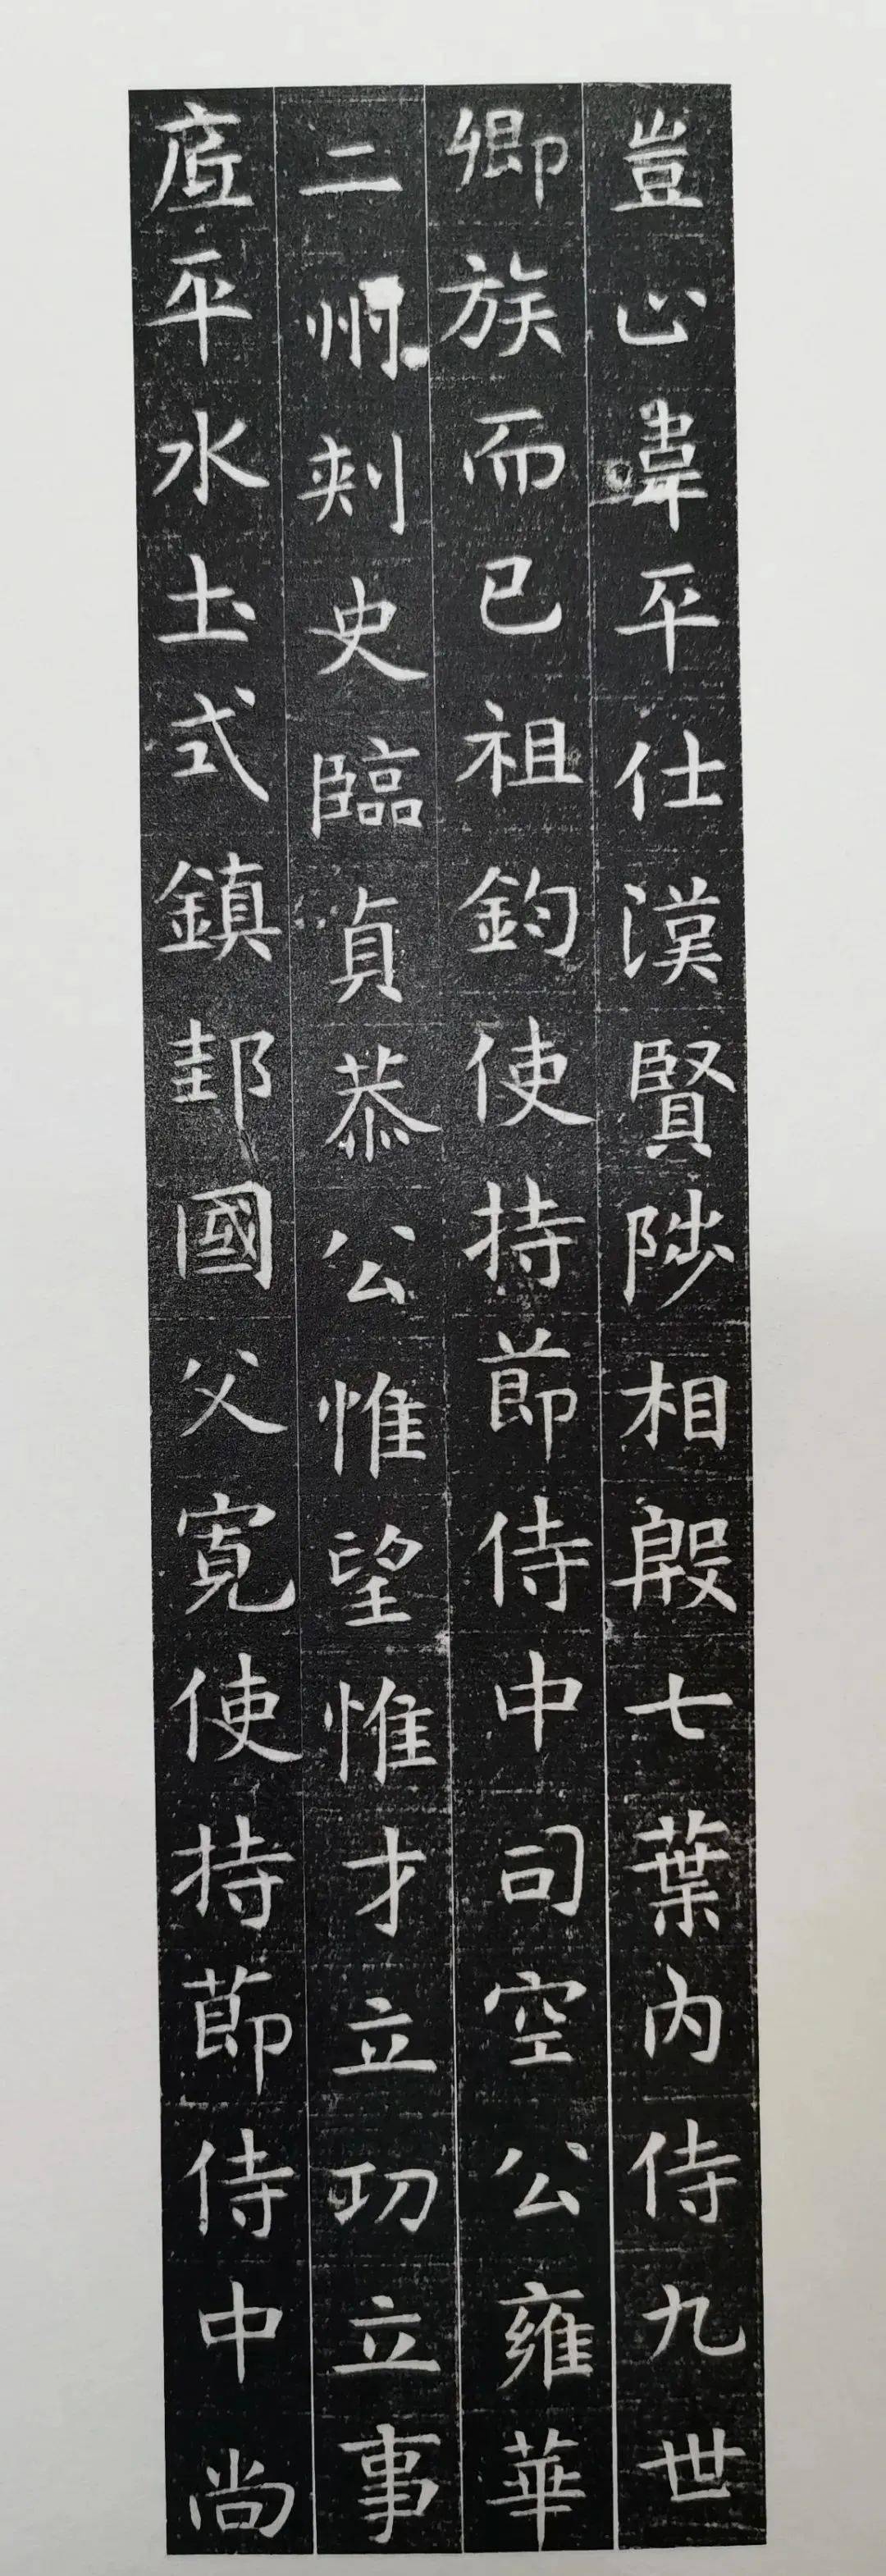 豈止韋平仕漢賢陟相殷七葉內侍九世
卿族而已祖鈞使持節侍中司空公雍華
二州刺史臨貞恭公惟望惟才立功立事
底平水土式鎮邦國父寬使持節侍中尚